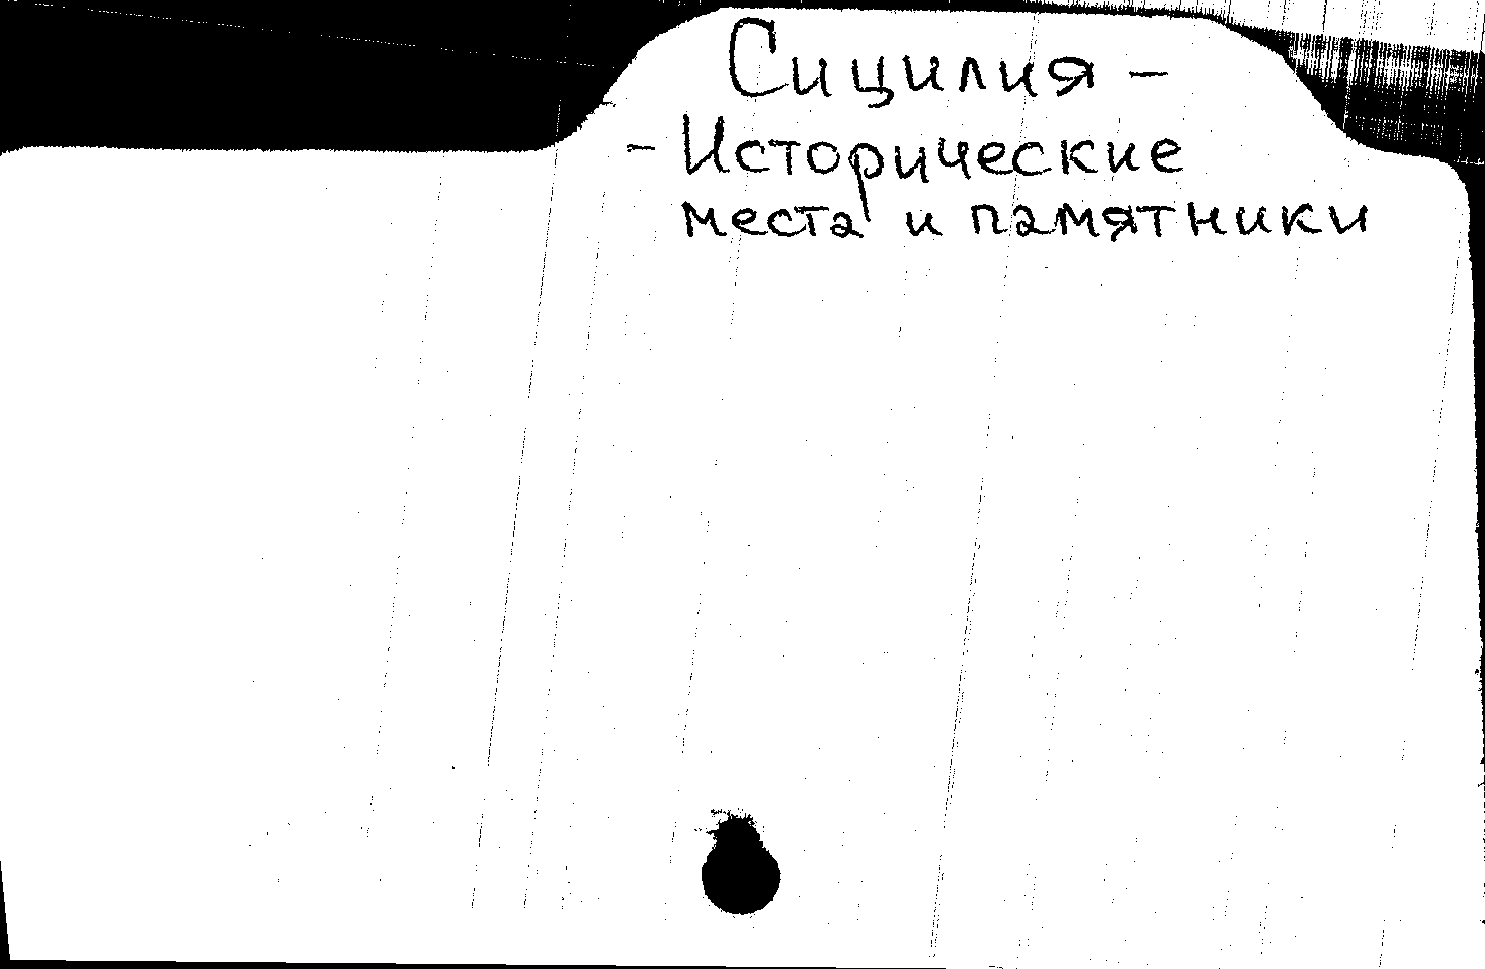 Сицилия –
- Исторические
места и памятники